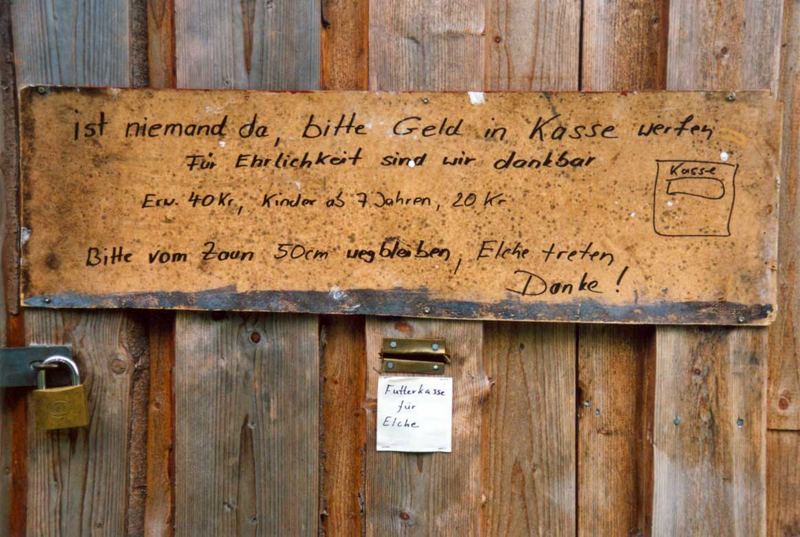 ist niemand da, bitte Geld in Kasse werfen
Für Ehrlichkeit sind wir dankbar
Kasse
Erw. 40 Kr, Kinder ab 7 Jahren, 20 Kr
Bitte vom Zaun 50cm wegbleiben, Elche treten
Danke!
Futterkasse
für
Elche